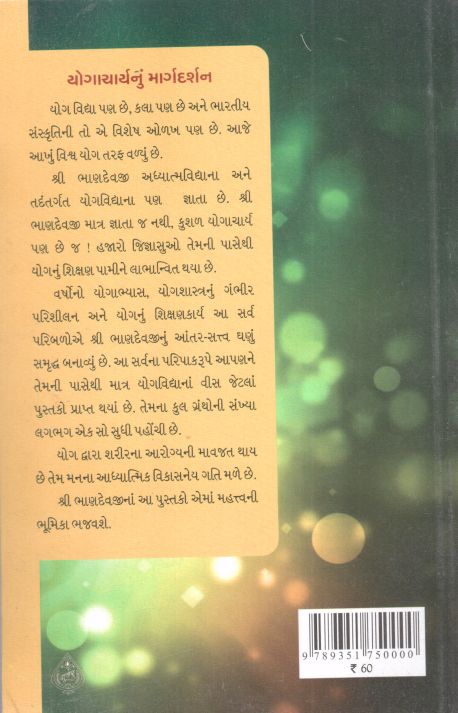 યોગાચાર્યનું માર્ગદર્શન
યોગ વિદ્યા પણ છે, કલા પણ છે અને ભારતીય
સંસ્કૃતિની તો એ વિશેષ ઓળખ પણ છે. આજે
આખું વિશ્વ યોગ તરફ વળ્યું છે.
શ્રી ભાણદેવજી અધ્યાત્મવિદ્યાના અને
તદંતર્ગત યોગવિદ્યાના પણ જ્ઞાતા છે. શ્રી
ભાણદેવજી માત્ર જ્ઞાતા જ નથી, કુશળ યોગાચાર્ય
પણ છે જ ! હજારો જિજ્ઞાસુઓ તેમની પાસેથી
યોગનું શિક્ષણ પામીને લાભાન્વિત થયા છે.
વર્ષોનો યોગાભ્યાસ, યોગશાસ્ત્રનું ગંભીર
પરિશીલન અને યોગનું શિક્ષણકાર્ય આ સર્વ
પરિબળોએ શ્રી ભાણદેવજીનું આંતર-સત્ત્વ ઘણું
સમૃદ્ધ બનાવ્યું છે. આ સર્વના પરિપાકરૂપે આપણને
તેમની પાસેથી માત્ર યોગવિદ્યાનાં વીસ જેટલાં
પુસ્તકો પ્રાપ્ત થયાં છે. તેમના કુલ ગ્રંથોની સંખ્યા
લગભગ એક સો સુધી પહોંચી છે.
યોગ દ્વારા શરીરના આરોગ્યની માવજત થાય
છે તેમ મનના આધ્યાત્મિક વિકાસનેય ગતિ મળે છે.
શ્રી ભાણદેવજીનાં આ પુસ્તકો એમાં મહત્ત્વની
ભૂમિકા ભજવશે.
9 789351 750000
₹ 60